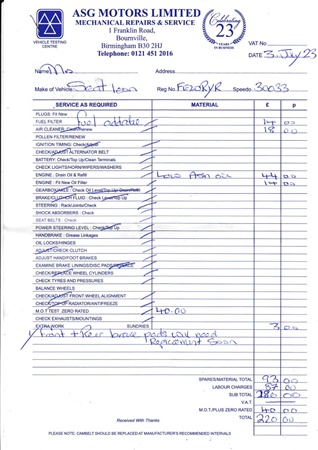 ASG MOTORS LIMITED
MECHANICAL REPAIRS & SERVICE
1 Franklin Road,
Bournville,
Birmingham B30 2HJ
Telephone: 0121 451 2016
VEHICLE TESTING CENTRE
Celebrating 23 YEARS IN BUSINESS
VAT No
DATE 3 July 23
Name Mrs Address
Make of Vehicle Seat Leon Reg No. Speedo 30033
SERVICE AS REQUIRED MATERIAL £ p
PLUGS: Fit New
FUEL FILTER Fuel additive 14 00
AIR CLEANER: Clean/Renew 18 00
POLLEN FILTER/RENEW
IGNITION TIMING: Adjust
CHECK/ADJUST ALTERNATOR BELT
BATTERY: Check/Top Up/Clean Terminals
CHECK LIGHTS/HORN/WIPERS/WASHERS
ENGINE : Drain Oil & Refill Low Ash oil 44 00
ENGINE : Fit New Oil Filter 14 00
GEARBOX/AXLE : Check Oil Level/Top Up/Drain/Refill
BRAKE/CLUTCH FLUID : Check Level/Top Up
STEERING : Rack/Joints/Check
SHOCK ABSORBERS : Check
SEAT BELTS : Check
POWER STEERING LEVEL : Check/Top Up
HANDBRAKE : Grease Linkages
OIL LOCKS/HINGES
ADJUST/CHECK CLUTCH
ADJUST HAND/FOOT BRAKES
EXAMINE BRAKE LININGS/DISC PADS/
CHECK/REPLACE WHEEL CYLINDERS
CHECK TYRES AND PRESSURES
BALANCE WHEELS
CHECK/ADJUST FRONT WHEEL ALIGNMENT
CHECK/TOP UP RADIATOR/ANTIFREEZE
M.O.T TEST ZERO RATED 40.00
CHECK EXHAUSTS/MOUNTINGS
EXTRA WORK SUNDRIES 3 00
Front + Rear brake pads will need
Replacement Soon
SPARES/MATERIAL TOTAL 93 00
LABOUR CHARGES 87 00
SUB TOTAL 180 00
V.A.T.
M.O.T/PLUS ZERO RATED 40 00
Received With Thanks TOTAL 220 00
PLEASE NOTE: CAMBELT SHOULD BE REPLACED AT MANUFACTURER'S RECOMMENDED INTERVALS